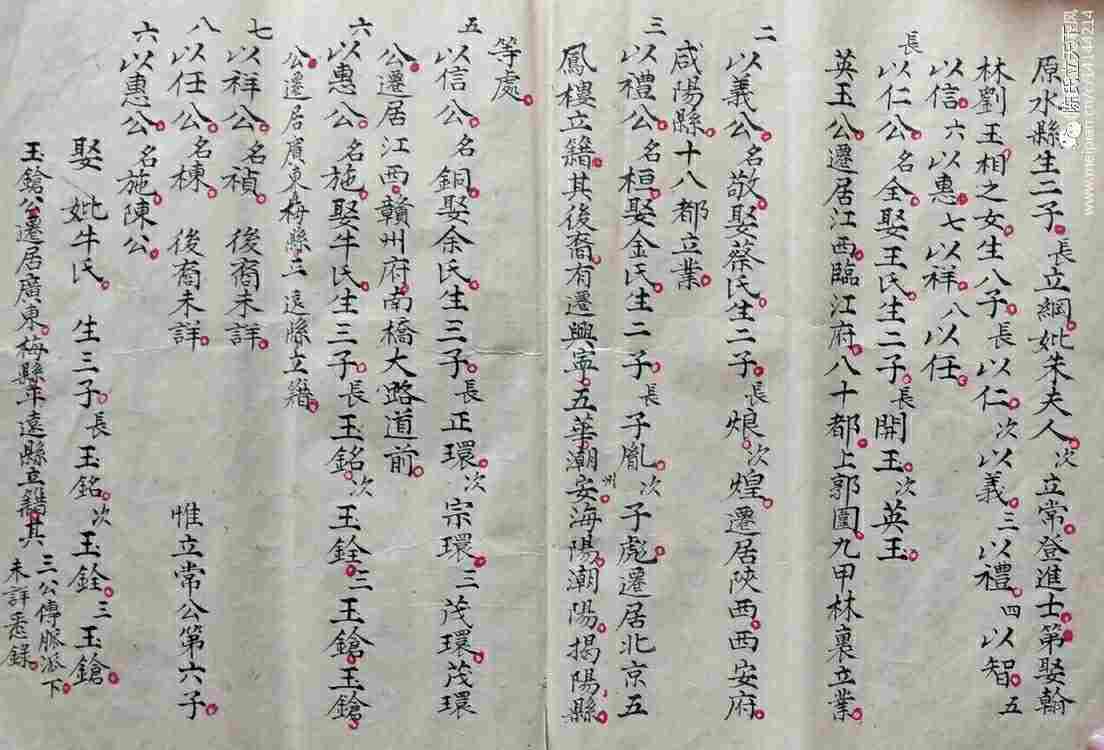 原水縣生二子長立綱妣朱夫人次立常登進士第娶翰
林劉王相之女生八子長以仁次以義三以禮四以智五
以信六以惠七以祥八以任
長
以仁公名全娶王氏生二子長開玉次英玉
英玉公遷居江西臨江府八十都上郭圍九甲林裏立業
二
以義公名敬娶蔡氏生二子長烺次煌遷居陝西西安府
咸陽縣十八都立業
三
以禮公名桓娶金氏生二子長子胤次子彪遷居北京五
鳳樓立籍其後裔有遷興寧五華潮州安海陽潮陽揭陽縣
等處
五
以信公名銅娶余氏生三子長正環次宗環三茂環茂環
公遷居江西贛州府南橋大路道前
六
以惠公名施娶牛氏生三子長玉銘次玉銓三玉鎗玉鎗
公遷居廣東梅縣三遠縣立籍
七
以祥公名禎 後裔未詳
八
以任公名棟 後裔未詳 惟立常公第六子
六
以惠公名施陳公
娶 妣牛氏 生三子長玉銘次玉銓三玉鎗
玉鎗公遷居廣東梅縣平遠縣立籍其三公傳脈派下
未詳悉錄
www.meipian.cn/c/44144214